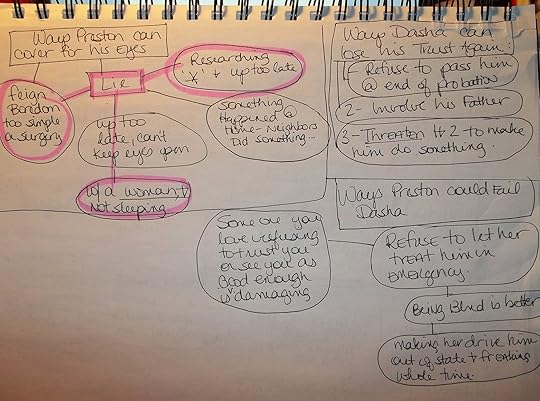 Ways Preston can
cover for his Eyes
Lie
Researching
"X" + up too late
Feign
Boredom
too simple
a surgery
up too
late, can't
keep eyes open
something
Happened @
Home - Neighbors
Did something...
w/ a woman, +
Not sleeping
Ways Dasha can
lose his Trust Again:
1- Refuse to pass him
@ end of probation
2- Involve his Father
3- Threaten # 2 to make
him do something.
Ways Preston could Fail
Dasha
Someone you
love refusing
to trust you
or see you as
Good enough
is damaging
Refuse to let her
treat him in
Emergency.
Being Blind is better
making her drive him
out of state + freaking
whole time.